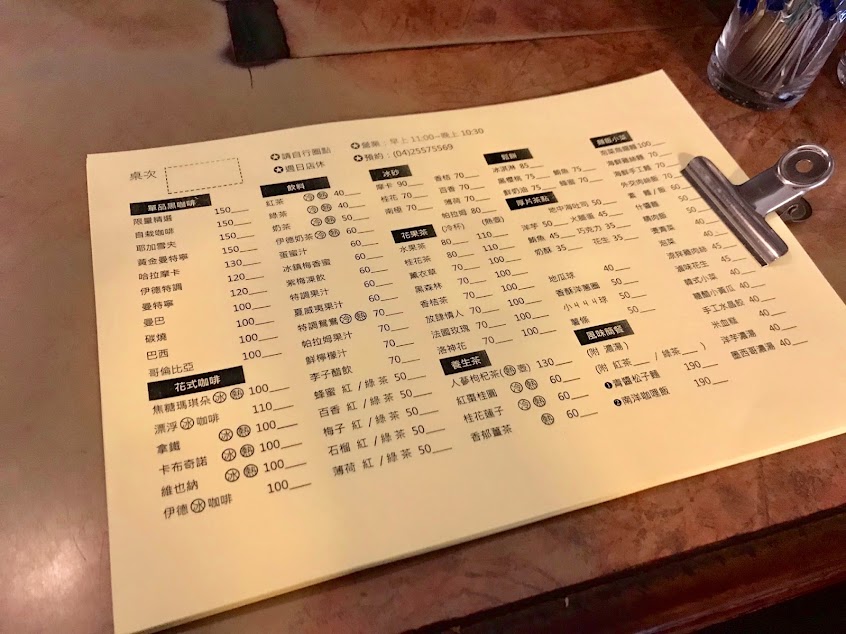 桌次
✪請自行圈點
✪週日店休
✪營業：早上 11:00~晚上 10:30
✪預約：(04)25575569
單品黑咖啡
限量精選 150
自栽咖啡 150
耶加雪夫 150
黃金曼特寧 150
哈拉摩卡 130
伊德特調 120
曼特寧 120
曼巴 100
碳燒 100
巴西 100
哥倫比亞 100
花式咖啡
焦糖瑪琪朵 冰 熱 100
漂浮 冰 咖啡 110
拿鐵 冰 熱 100
卡布奇諾 冰 熱 100
維也納 冰 熱 100
伊德 冰 咖啡 100
飲料
紅茶 冷 熱 40
綠茶 冷 熱 40
奶茶 冷 熱 50
伊德奶茶 冷 熱 60
蛋蜜汁 60
冰鎮梅香蜜 60
紫梅凍飲 60
特調果汁 60
夏威夷果汁 60
特調鴛鴦 冷 熱 70
帕拉姆果汁 70
鮮檸檬汁 70
李子醋飲 70
蜂蜜 紅 / 綠 茶 50
百香 紅 / 綠 茶 50
梅子 紅 / 綠 茶 50
石榴 紅 / 綠 茶 50
薄荷 紅 / 綠 茶 50
冰砂
摩卡 90
桂花 70
南極 70
香桔 70
百香 70
薄荷 70
帕拉姆 80
花果茶
(冷杯) (熱壺)
水果茶 80 110
桂花茶 80 110
薰衣草 70 100
黑森林 70 100
香桔茶 70 100
放肆情人 70 100
法國玫瑰 70 100
洛神花 70 100
養生茶
人蔘枸杞茶(熱壺) 130
紅棗桂圓 冷 熱 60
桂花蓮子 冷 熱 60
香郁薑茶 熱 60
鬆餅
冰淇淋 85
黑櫻桃 75
鮮奶油 75
鮪魚 75
蜂蜜 70
厚片茶點
洋芋 50
鮪魚 45
奶酥 35
地中海吐司 50
火腿蛋 45
巧克力 35
花生 35
地瓜球 40
香酥洋蔥圈 50
小ㄑㄑ球 50
薯條 50
風味簡餐
(附 濃湯)
(附 紅茶 / 綠茶 )
❶青醬松子麵 190
❷南洋咖哩飯 190
麵飯小菜
泡菜烏龍麵 100
海鮮雞絲麵 70
海鮮手工麵 70
外交肉燥飯 70
素 麵 / 飯 60
什醬麵
燥肉飯
燙青菜
泡菜
涼拌雞肉絲 45
滷味花生 45
韓式小菜 40
糖醋小黃瓜 40
手工水晶餃 40
米血糕 40
洋芋濃湯 40
墨西哥濃湯 40